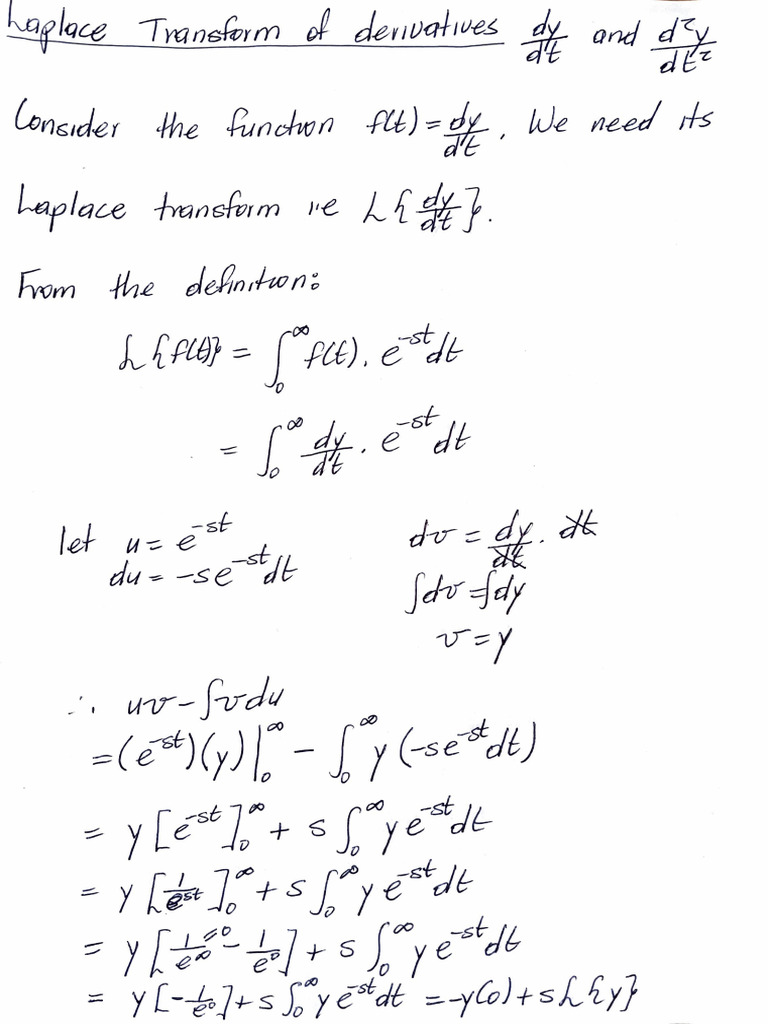 Laplace Transform of derivatives dy/dt and d²y/dt²
Consider the function f(t) = dy/dt. We need its
Laplace transform i.e L{dy/dt}.
From the definition:
L{f(t)} = ∫₀^∞ f(t). e^-st dt
= ∫₀^∞ dy/dt . e^-st dt
let u = e^-st dv = dy/dt . dt
du = -se^-st dt ∫dv = ∫dy
v = y
∴ uv - ∫vdu
= (e^-st)(y)|₀^∞ - ∫₀^∞ y(-se^-st dt)
= y[e^-st]₀^∞ + s∫₀^∞ ye^-st dt
= y[1/e^st]₀^∞ + s∫₀^∞ ye^-st dt
= y[1/e^∞ =0 - 1/e^0] + s∫₀^∞ ye^-st dt
= y[-1/e^0] + s∫₀^∞ ye^-st dt = -y(0) + sL{y}